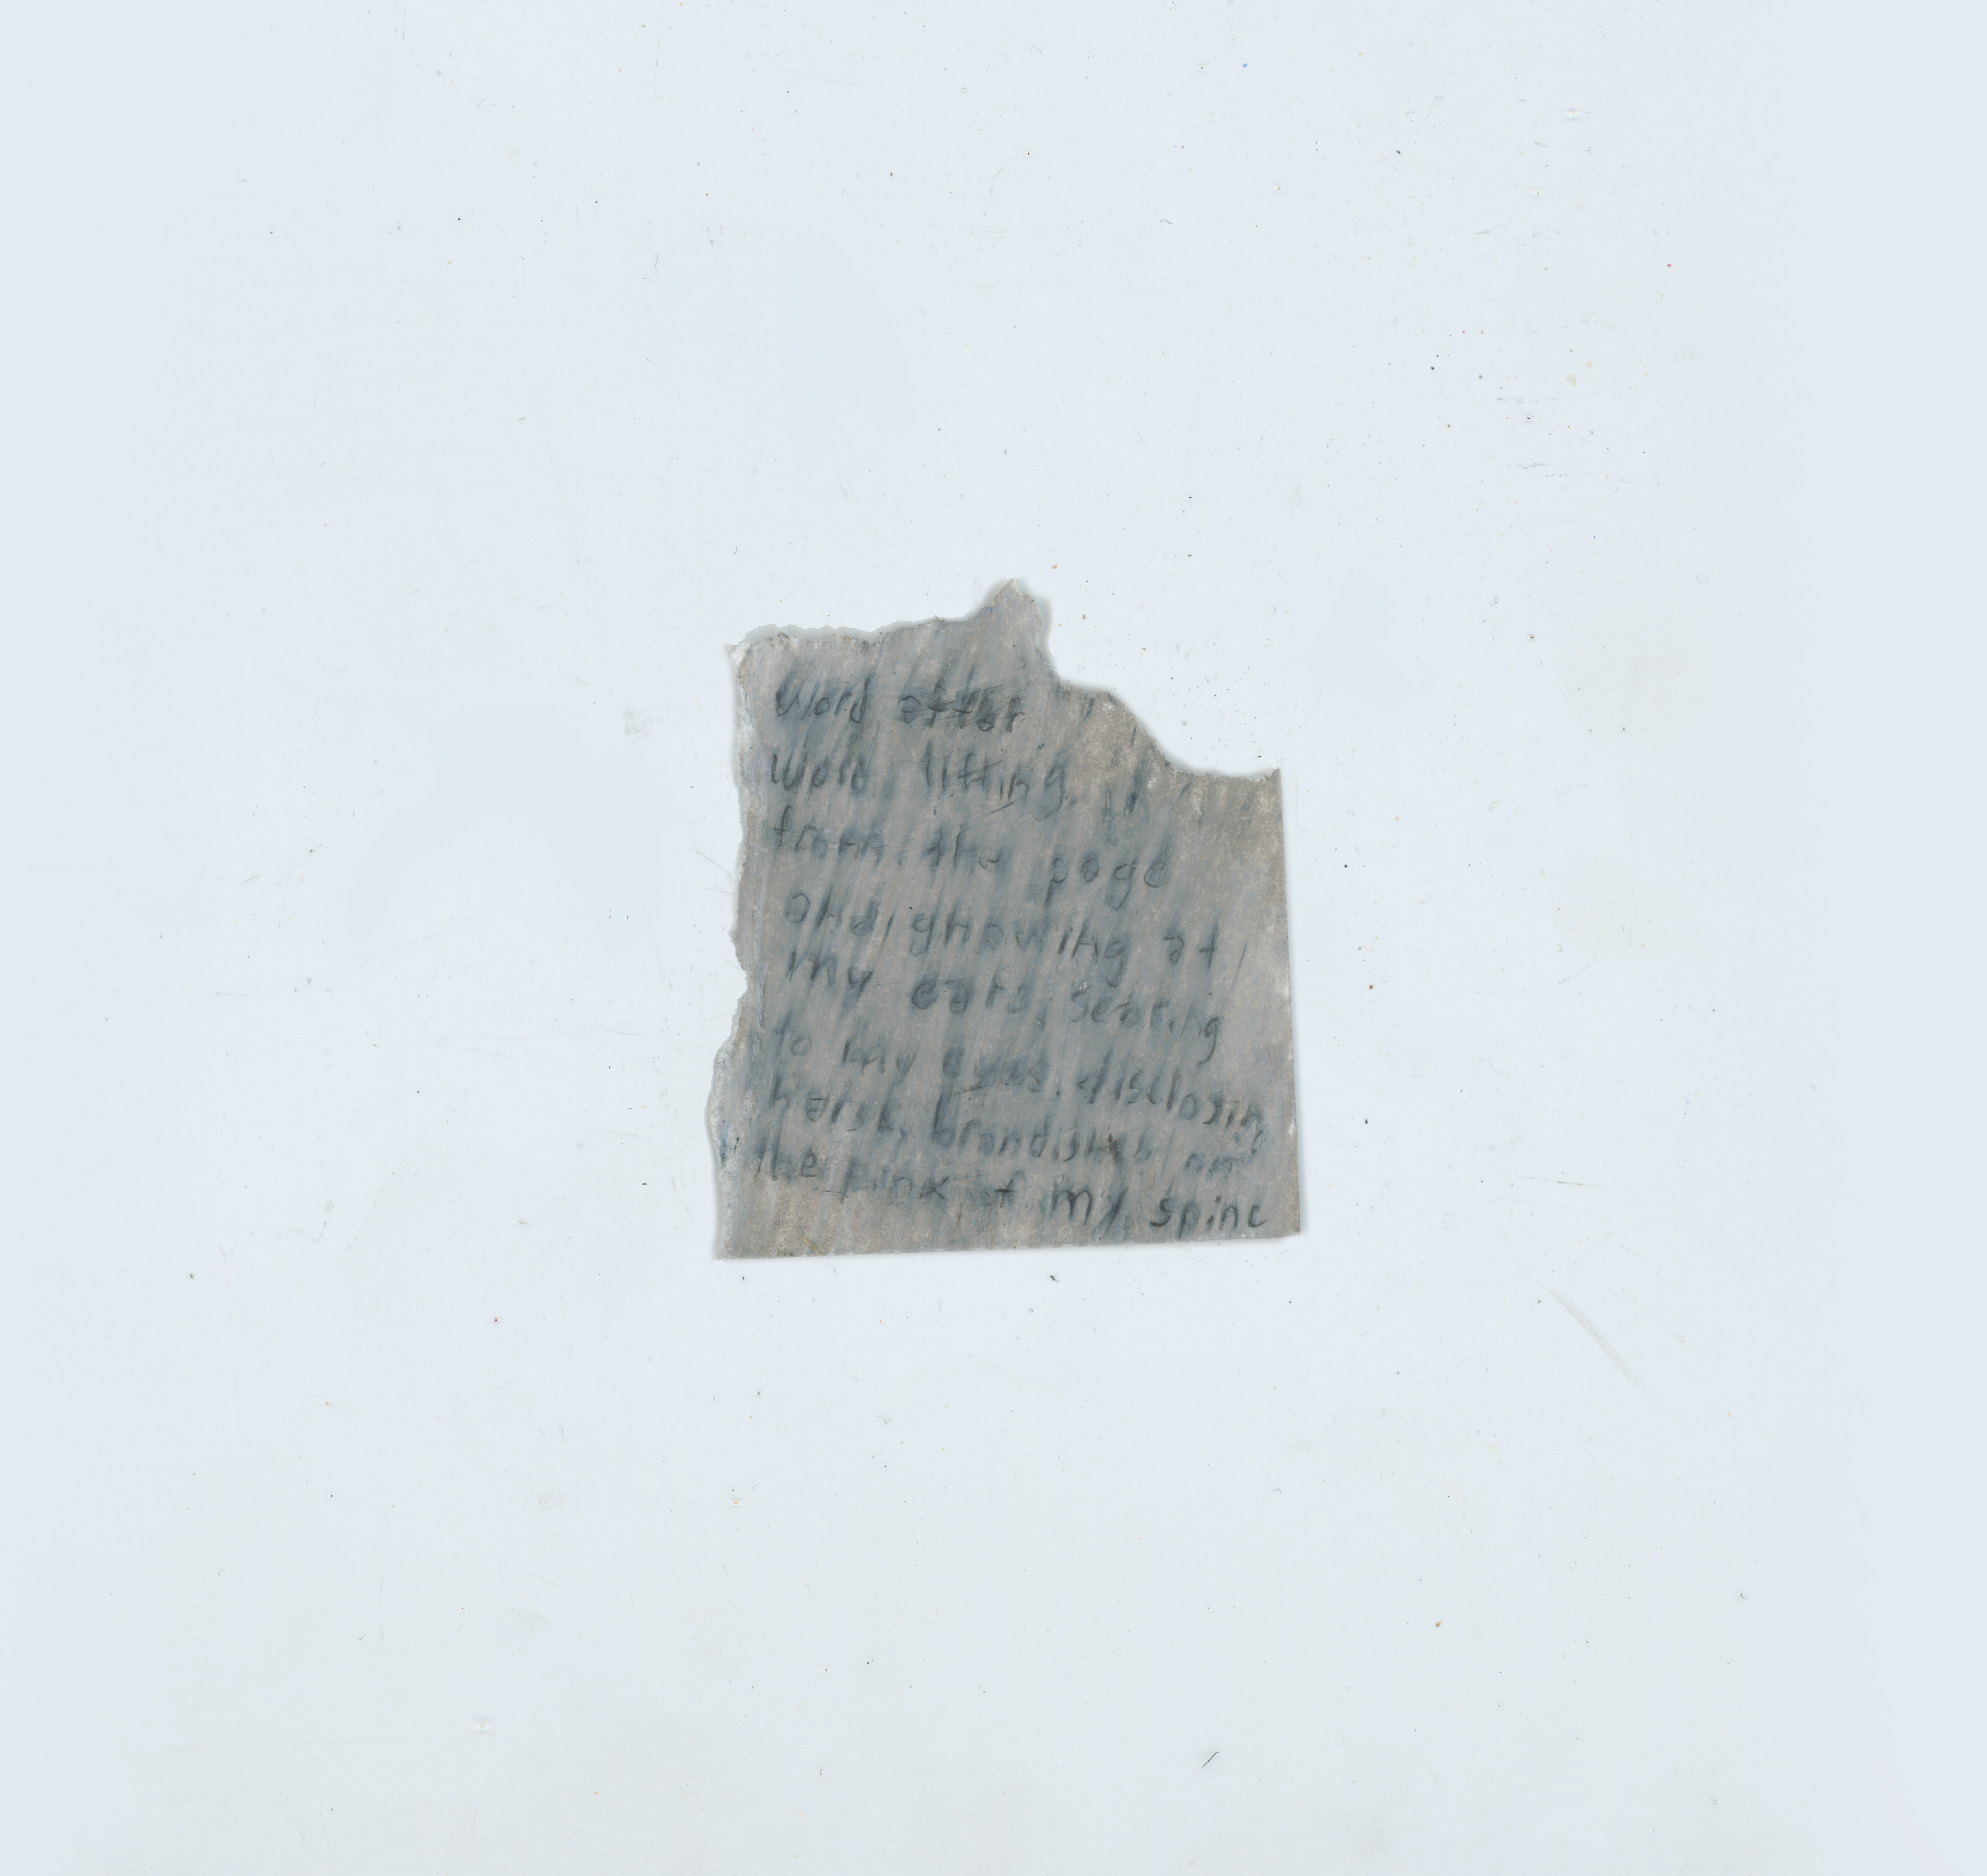 word after
word lifting
from the page
and gnawing at
my ears, searing
to my eyes, disclosing
harsh, brandished on
the pink of my spine